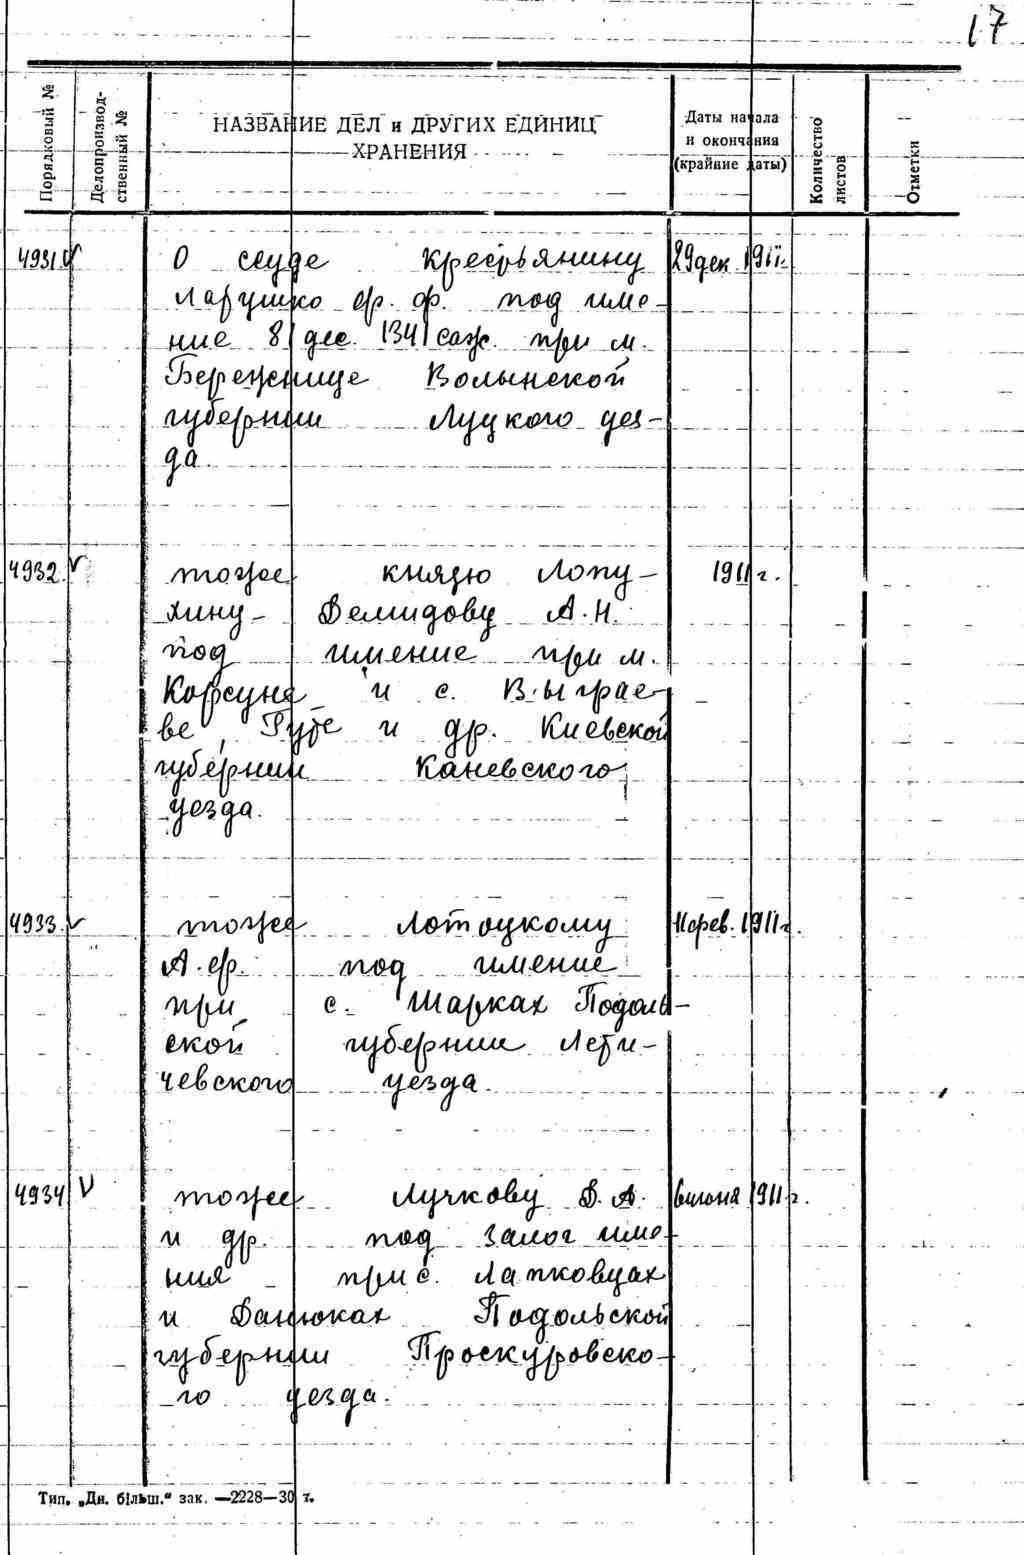 17
Порядковый №
Делопроизвод-
ственный №
НАЗВАНИЕ ДЕЛ и ДРУГИХ ЕДИНИЦ
ХРАНЕНИЯ
Даты начала
и окончания
(крайние даты)
Количество
листов
Отметки
4931 О ссуде крестьянину 29 дек. 1911 г.
под име-
ние 81 дес. 1341 саж. при м.
Бережнице Волынской
губернии Луцкого уез-
да.
4932. тоже князю Лопу- 1911 г.
хину- Демидову А.Н.
под имение при м.
Корсуне и с. Выграе-
ве, Руте и др. Киевской
губернии Каневского
уезда.
4933. тоже Лотоцкому фев. 1911 г.
А.Ф. под имение
при с. Шарках Подоль-
ской губернии Лети-
чевского уезда.
4934 тоже Лучкову Д.А. июня 1911 г.
и др. под залог име-
ния при с. Лапковцах
и Данюках Подольской
губернии Проскуровско-
го уезда.
Тип. „Дн. більш.“ зак. —2228—30 т.